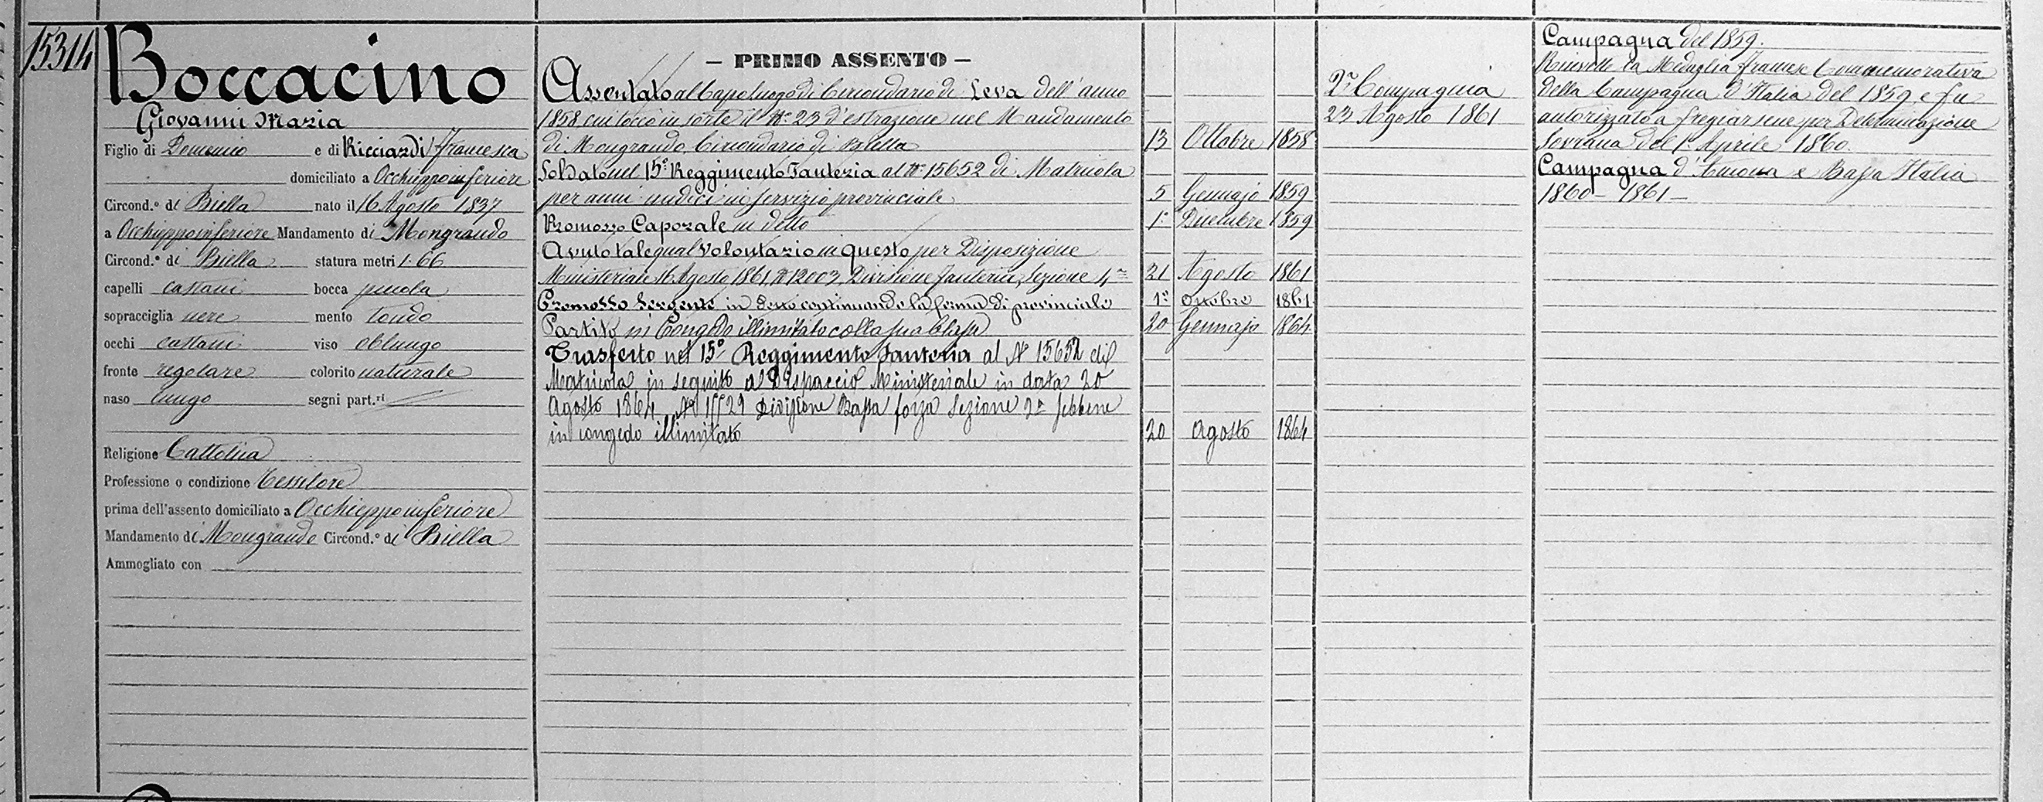 15314
Boccacino
Giovanni Maria
Figlio di Domenico e di Ricciardi Francesca
domiciliato a Occhieppoinferiore
Circond.º di Biella nato il 16 Agosto 1837
a Occhieppoinferiore Mandamento di Mongrando
Circond.º di Biella statura metri 1.66
capelli castani bocca piccola
sopracciglia nere mento tondo
occhi castani viso oblungo
fronte regolare colorito naturale
naso lungo segni part.ri
Religione Cattolica
Professione o condizione Tessitore
prima dell'assento domiciliato a Occhieppoinferiore
Mandamento di Mongrando Circond.º di Biella
Ammogliato con
— PRIMO ASSENTO —
Assentato al Capoluogo di Circondario di Leva dell'anno
1858 cui toccò in sorte il Nº 23 d'estrazione nel Mandamento
di Mongrando Circondario di Biella 13 Ottobre 1858
Soldato nel 15º Reggimento Fanteria al Nº 15652 di Matricola
per anni undici in servizio provinciale 5 Gennajo 1859
Promosso Caporale in detto 1º Dicembre 1859
Avuto tale qual volontario in questo per Disposizione
Ministeriale 16 Agosto 1861 Nº 12003 Divisione Fanteria, Sezione 4ª 21 Agosto 1861
Promosso Sergente in detto continuando la ferma di provinciale 1º Ottobre 1861
Partito in Congedo illimitato colla sua Classe 20 Gennajo 1864
Trasferto nel 15º Reggimento Fanteria al Nº 15652 di
Matricola in seguito al Dispaccio Ministeriale in data 20
Agosto 1864 Nº Divisione Bassa forza Sezione 2ª sebbene
in congedo illimitato 20 Agosto 1864
2ª Compagnia
23 Agosto 1861
Campagna del 1859.
la Medaglia francese Commemorativa
della Campagna d'Italia del 1859 e fu
autorizzato a fregiarsene per Determinazione
Sovrana del 1º Aprile 1860.
Campagna d'Ancona e Bassa Italia
1860 — 1861 —